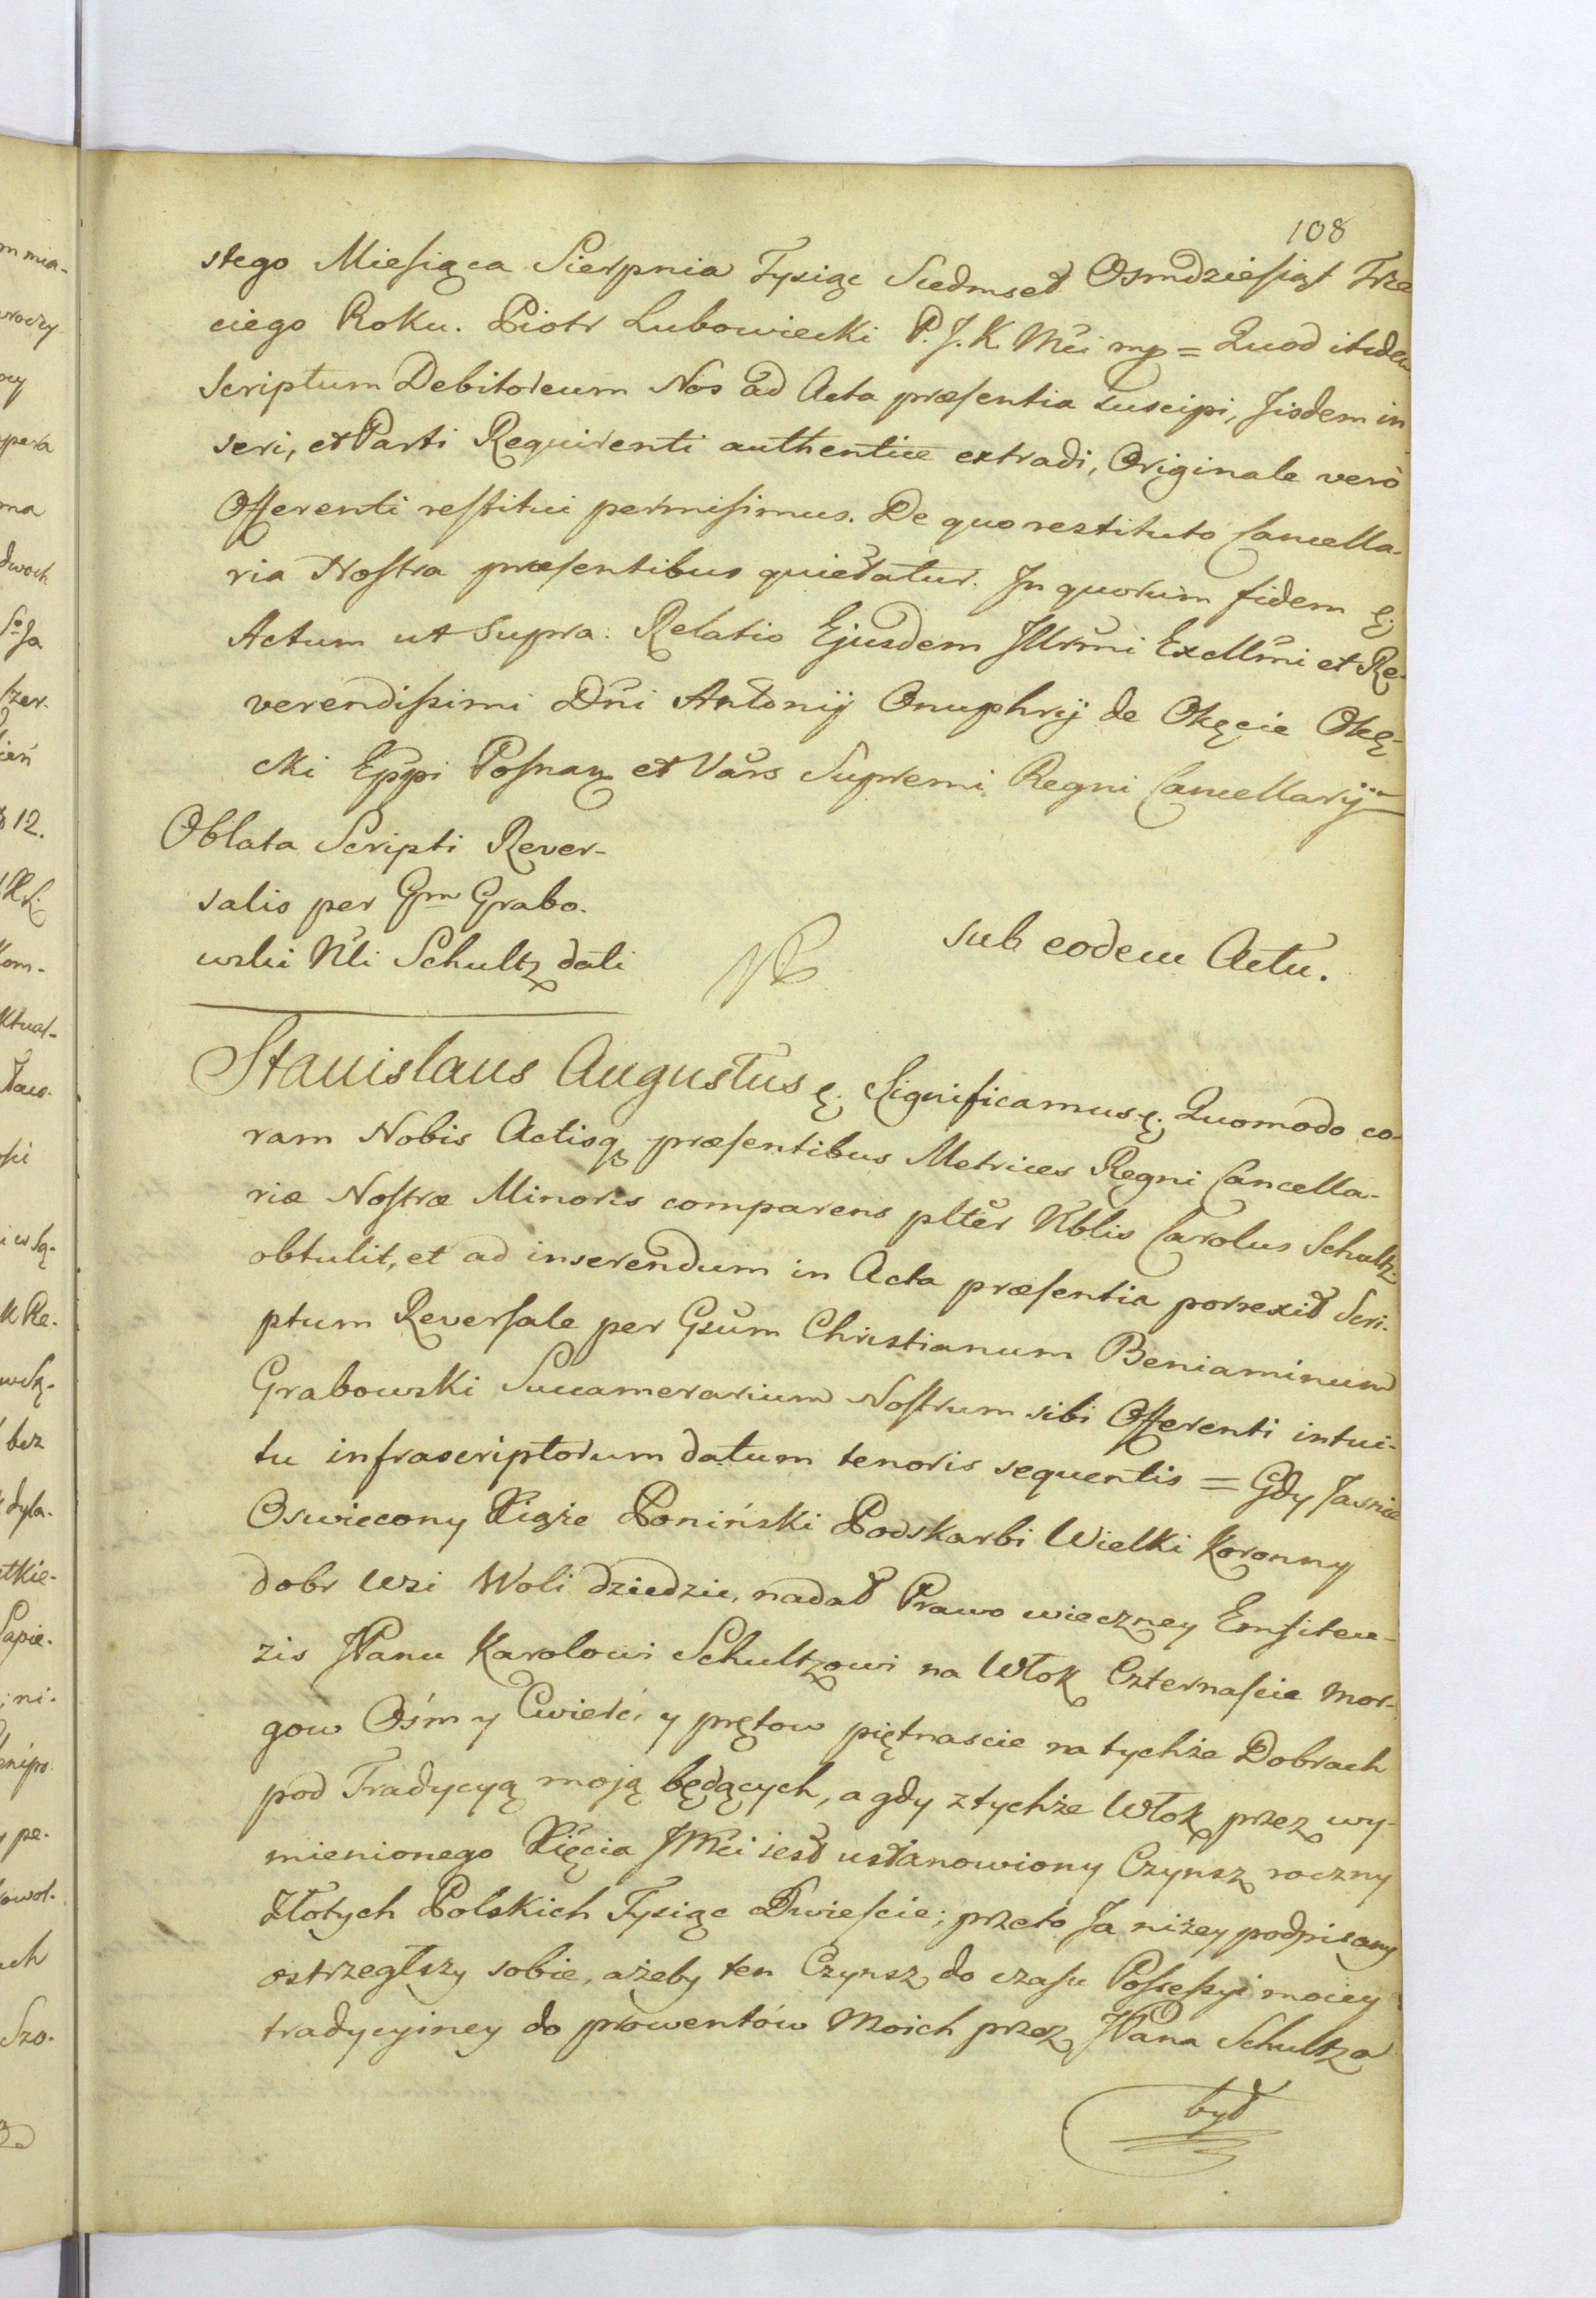 108
stego Miesiąca Sierpnia Tysiąc Siedmset Osmdziesiąt Trze
ciego Roku. Piotr Lubowiecki P. J. K. Mći mp = Quod itidem
Scriptum Debitoreum Nos ad Acta præsentia suscipi, Jisdem in
seri, et Parti Requirenti authentice extradi, Originale verò
Offerenti restitui permisimus. De quo restituto Cancella-
ria Nostra præsentibus quietatur. In quorum fidem &.
Actum ut supra. Relatio Ejusdem Illrmi Excllmi et Re-
verendissimi Dñi Antonij Onuphrij de Okęcie Okę-
cki Eppi Posnan et Vars Supremi Regni Cancellarij
Oblata Scripti Rever-
salis per Gm Grabo-
wski Nli Schultz dati
sub eodem Actu.
Stanislaus Augustus &. Significamus &. Quomodo co-
ram Nobis Actisq præsentibus Metrices Regni Cancella-
riæ Nostræ Minoris comparens plter Nblis Carolus Schultz
obtulit, et ad inserendum in Acta præsentia porrexit Scri-
ptum Reversale per Gsum Christianum Beniaminum
Grabowski Succamerarium Nostrum sibi Offerenti intui-
tu infrascriptorum datum tenoris sequentis = Gdy Jasnie
Oswiecony Xiąże Poniński Podskarbi Wielki Koronny
dobr Wsi Woli dziedzic, nadał Prawo wieczney Emfiteu-
zis JPanu Karolowi Schultzowi na Włok Czternascie Mor-
gow Ośm y Cwierć, y prętow piętnascie na tychże Dobrach
pod Tradycyą moją będących, a gdy z tychże Włok przez wy-
mienionego Xięcia JMći iest ustanowiony Czynsz roczny
Złotych Polskich Tysiąc Dwiescie; przeto Ja niżey podpisany
ostrzegłszy sobie, ażeby ten Czynsz do czasu Possessyi moiey
tradycyiney do prowentów Moich przez JPana Schultza
był